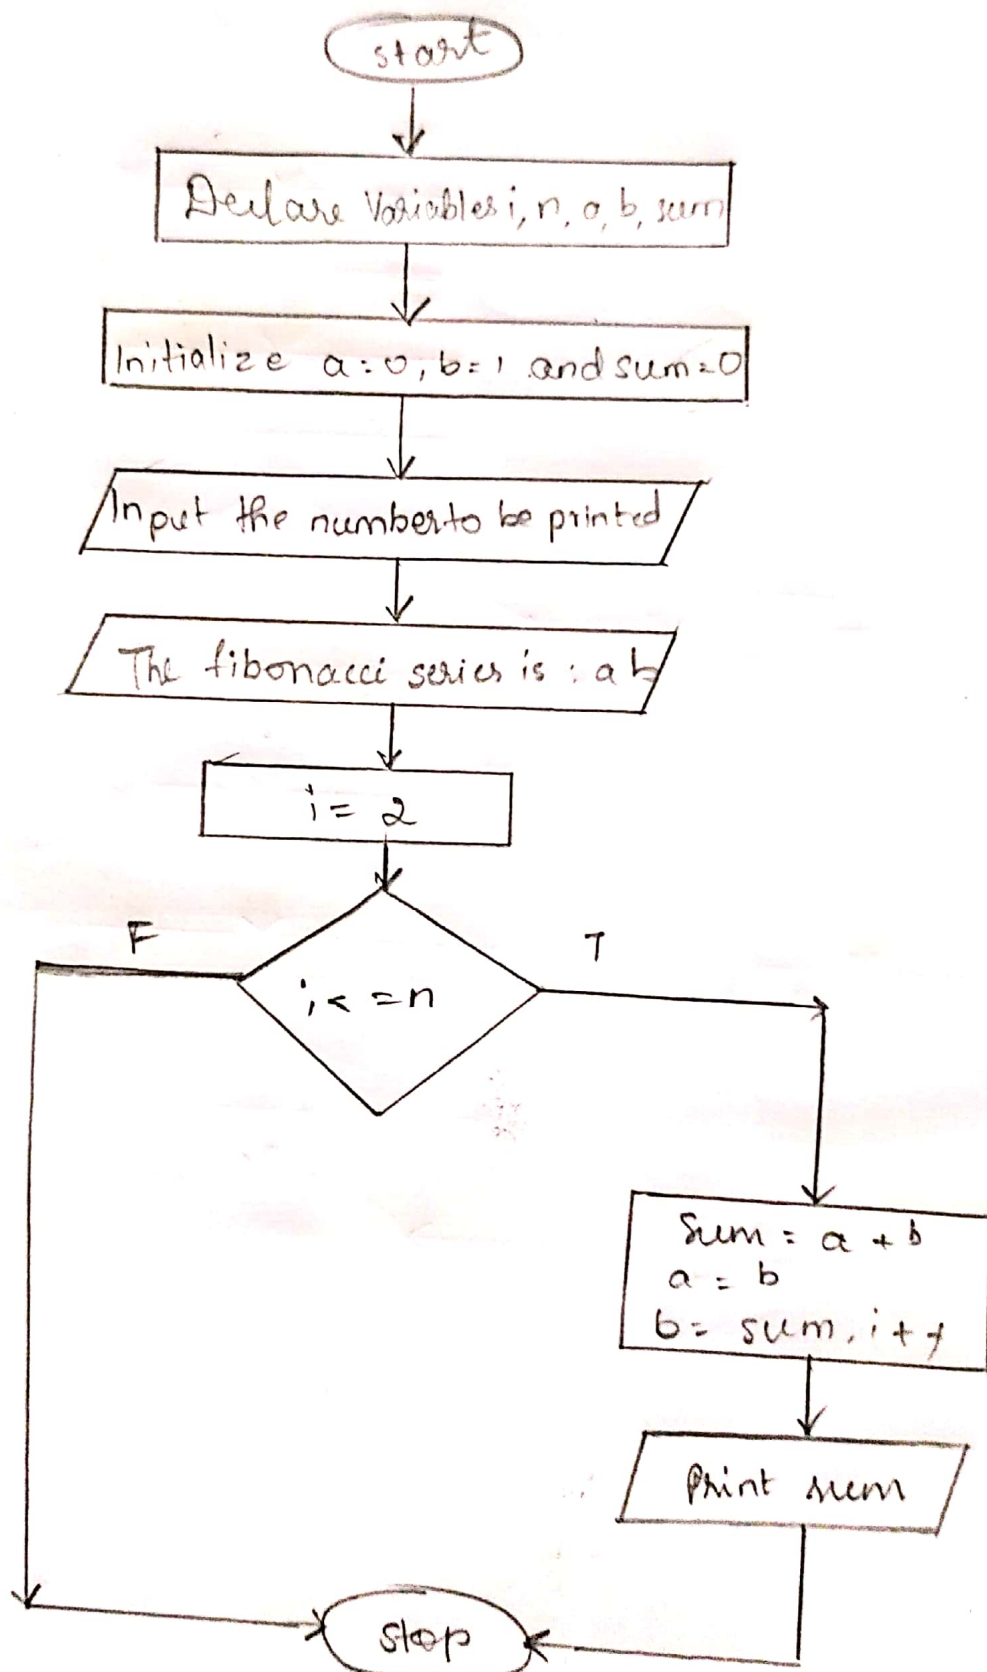 start
Declare Variables i, n, a, b, sum
Initialize a=0, b=1 and sum=0
Input the number to be printed
The fibonacci series is : a b
i = 2
F
T
i < = n
Sum = a + b
a = b
b = sum, i++
Print sum
stop